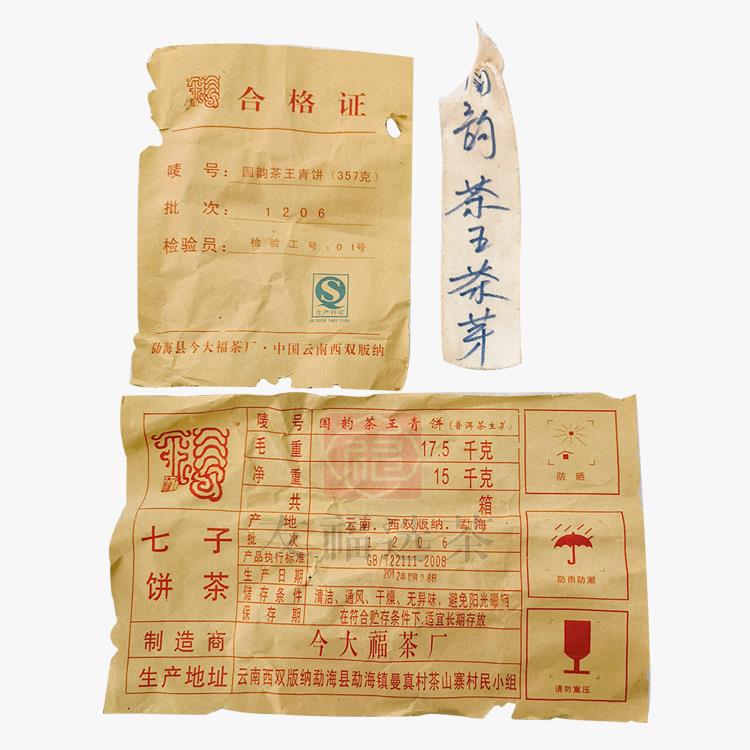 合格证
唛 号： 国韵茶王青饼（357克）
批 次： 1206
检验员： 检验工号：01号
生产许可
勐海县今大福茶厂·中国云南西双版纳
国韵茶王茶芽
七子
饼茶
唛 号 国韵茶王青饼（普洱茶生茶）
毛 重 17.5 千克
净 重 15 千克
共 箱
产 地 云南．西双版纳．勐海
批 次 1206
产品执行标准 GB/T22111-2008
生产日期
储存条件 清洁、通风、干燥、无异味，避免阳光曝晒
保存期 在符合贮存条件下,适宜长期存放
制造商 今大福茶厂
生产地址 云南西双版纳勐海县勐海镇曼真村茶山寨村民小组
防晒
防雨防潮
请勿重压
大福选茶